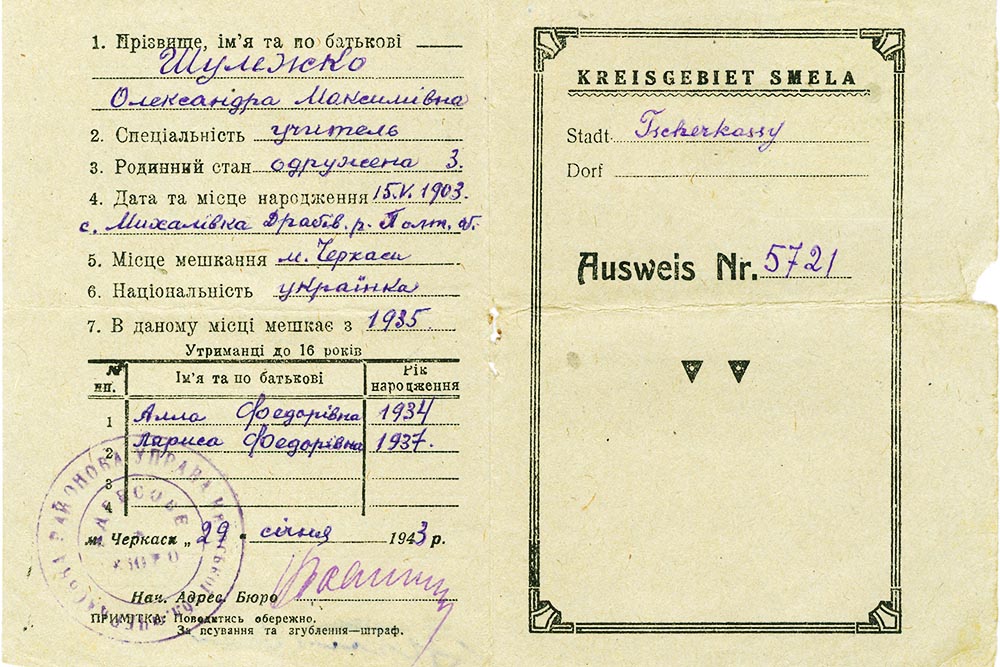 1. Прізвище, ім'я та по батькові
Шулежко
Олександра Максимівна
2. Спеціальність учитель
3. Родинний стан одружена 3.
4. Дата та місце народження 15.V.1903.
с. Михалівка Драбів. р. Полт. об.
5. Місце мешкання м. Черкаси
6. Національність українка
7. В даному місці мешкає з 1935.
Утриманці до 16 років
№ пп. Ім'я та по батькові Рік народження
1 Алла Федорівна 1934
2 Лариса Федорівна 1937.
3
4
м. Черкаси „29 " січня 1943 р.
Нач. Адрес. Бюро
ПРИМІТКА: Поводитись обережно.
За псування та згублення—штраф.
РАЙОНОВА УПРАВА
АДРЕСОВЕ
БЮРО
KREISGEBIET SMELA
Stadt Tscherkassy
Dorf
Ausweis Nr. 5721